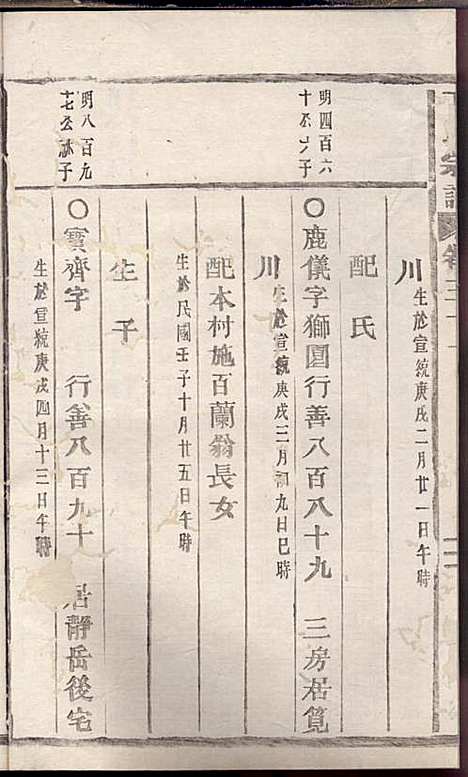 宗譜
川
生於宣統庚戌二月廿一日午時
配氏
明四百六
十公 子
〇鹿儀字獅圓行善八百八十九 三房居筧
川
生於宣統庚戌三月初九日巳時
配本村施百蘭翁長女
生於民國壬子十月廿五日午時
生子
明八百九
十七公 子
〇寶齊字 行善八百九十 居靜岳後宅
生於宣統庚戌四月十三日午時